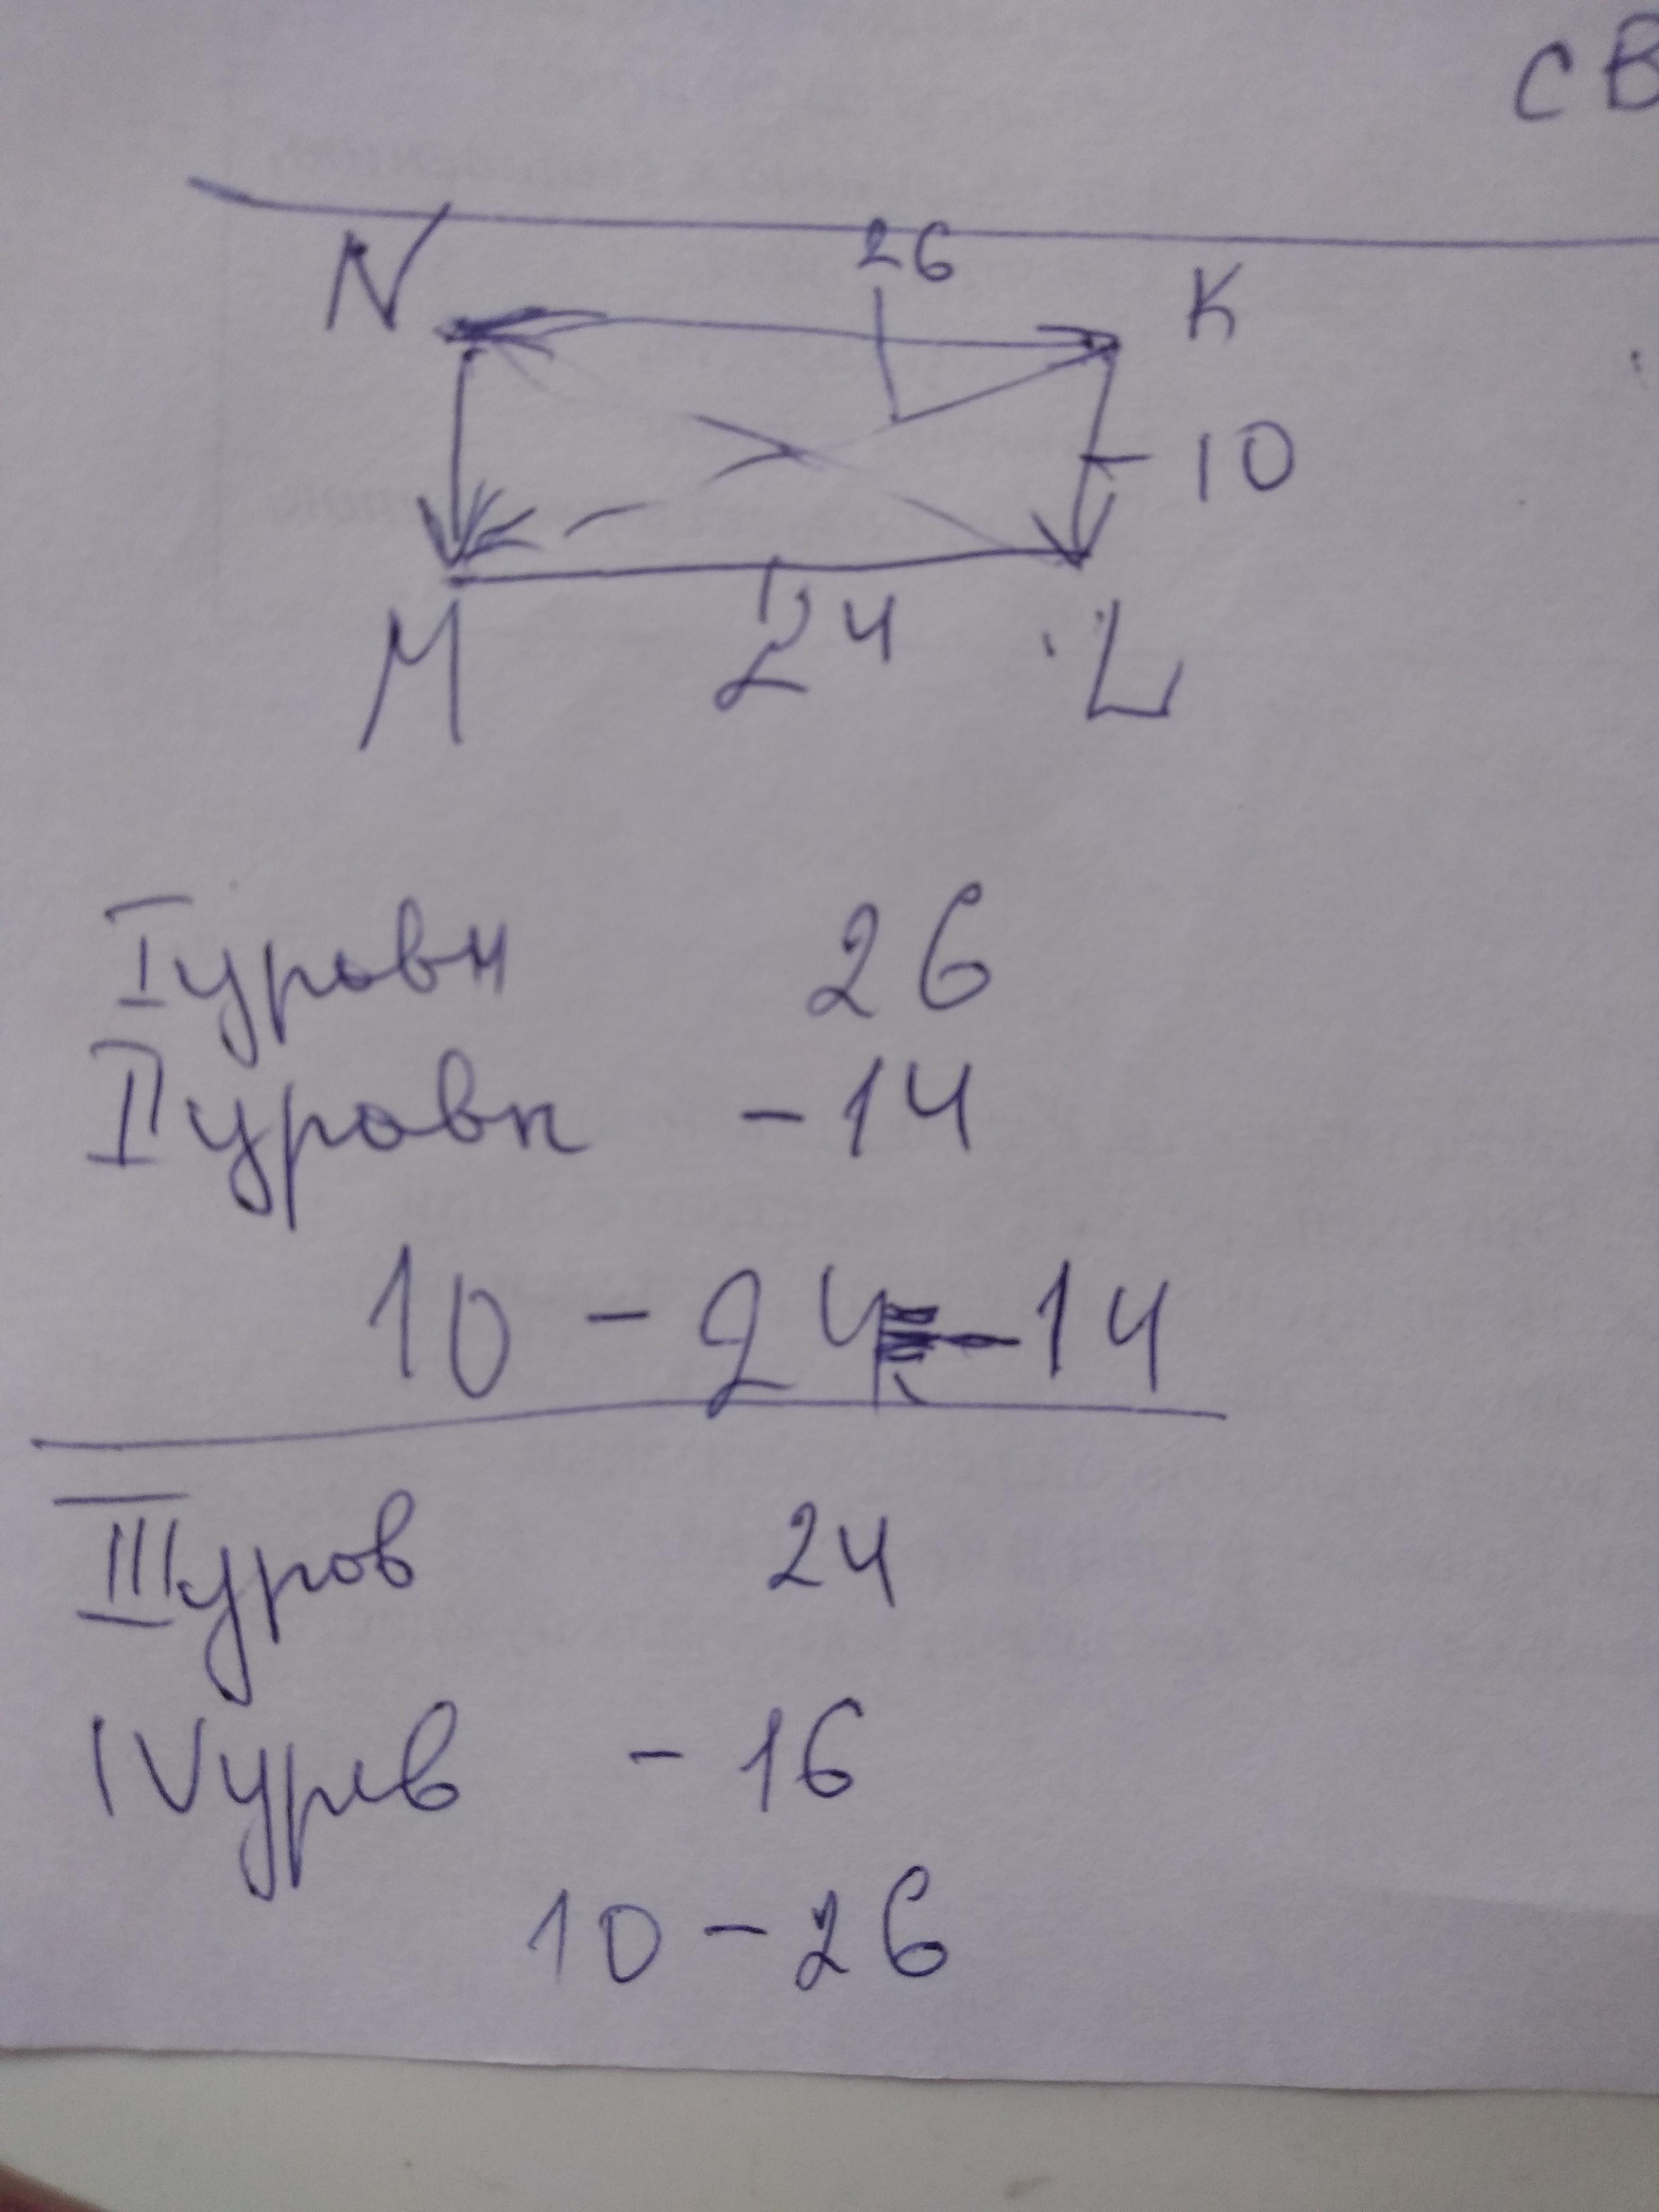 св
N 26 K
10
M 24 L
I уровн 26
II уровн - 14
10 - 24 = -14
III уров 24
IV уров - 16
10 - 26